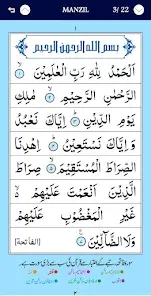 MANZIL 3/22
١
بسم الله الرحمن الرحيم
اَلْحَمْدُ لِلّٰهِ رَبِّ الْعٰلَمِيْنَ ۝١
الرَّحْمٰنِ الرَّحِيْمِ ۝٢ مٰلِكِ
يَوْمِ الدِّيْنِ ۝٣ اِيَّاكَ نَعْبُدُ
وَ اِيَّاكَ نَسْتَعِيْنُ ۝٤ اِهْدِنَا
الصِّرَاطَ الْمُسْتَقِيْمَ ۝٥ صِرَاطَ
الَّذِيْنَ اَنْعَمْتَ عَلَيْهِمْ ۝٦
غَيْرِ الْمَغْضُوْبِ عَلَيْهِمْ
وَلَا الضَّآلِّيْنَ ۝٧ (الفاتحة)